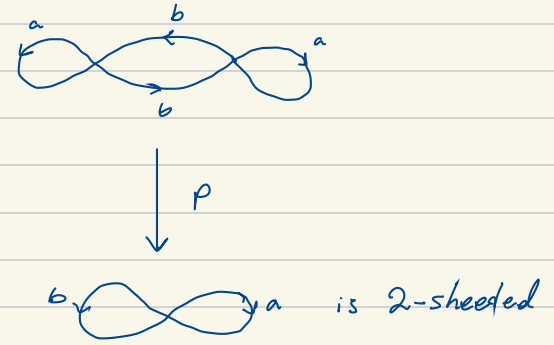 a b a
b
p
b a is 2-sheeded